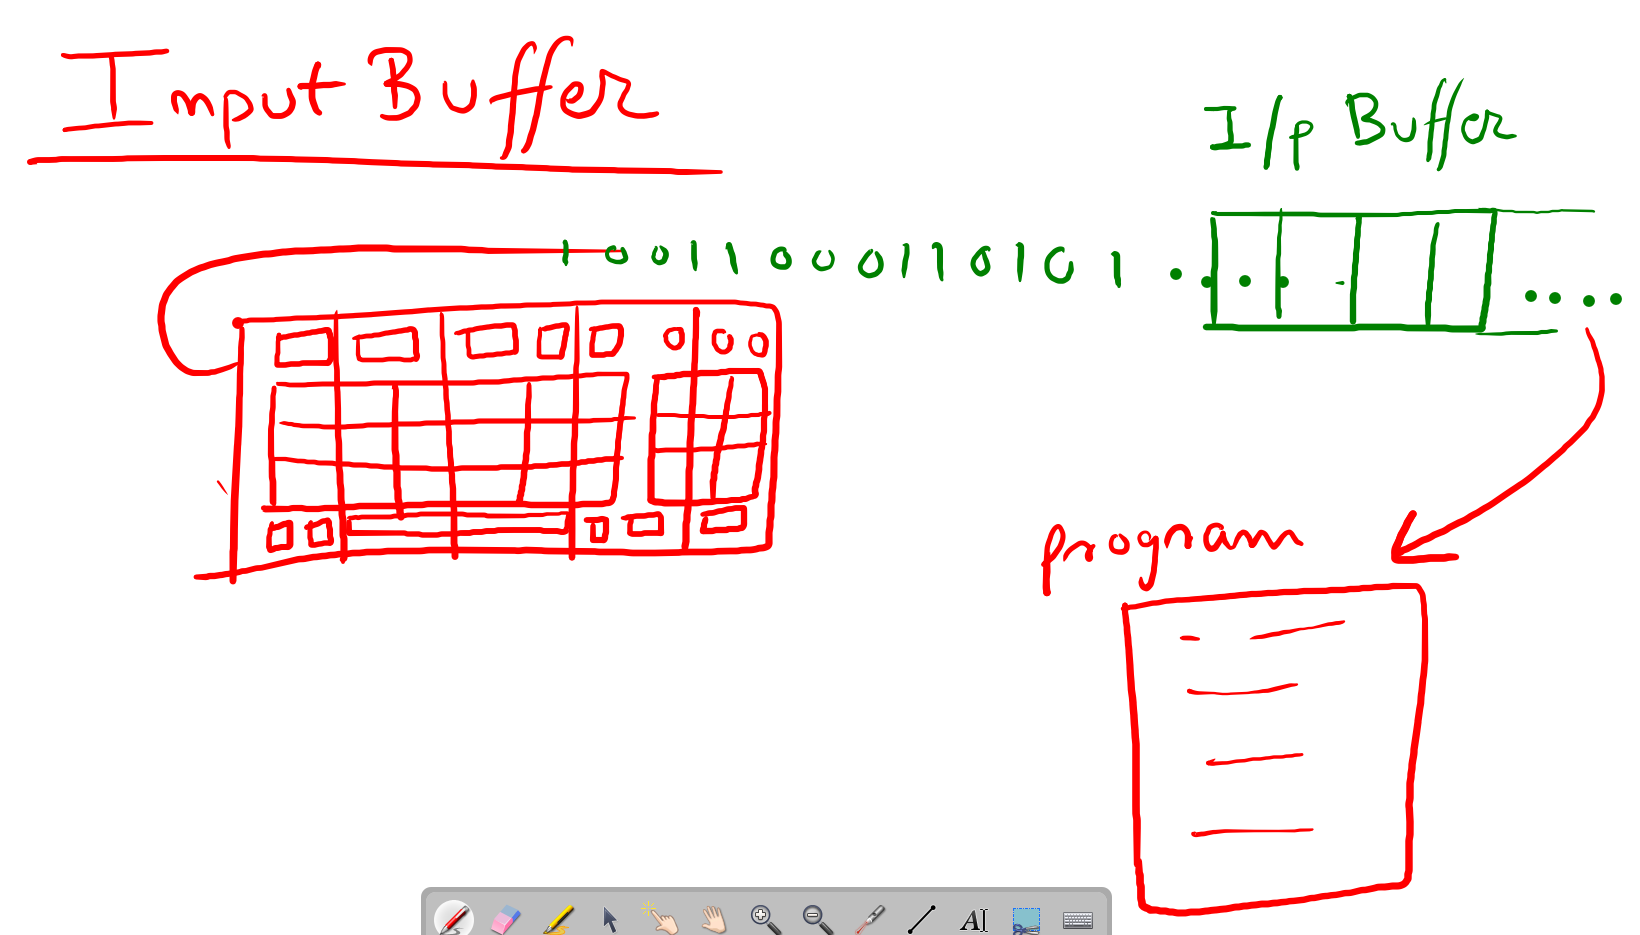 Input Buffer
I/p Buffer
1 0 0 1 1 0 0 0 1 1 0 1 0 1
program